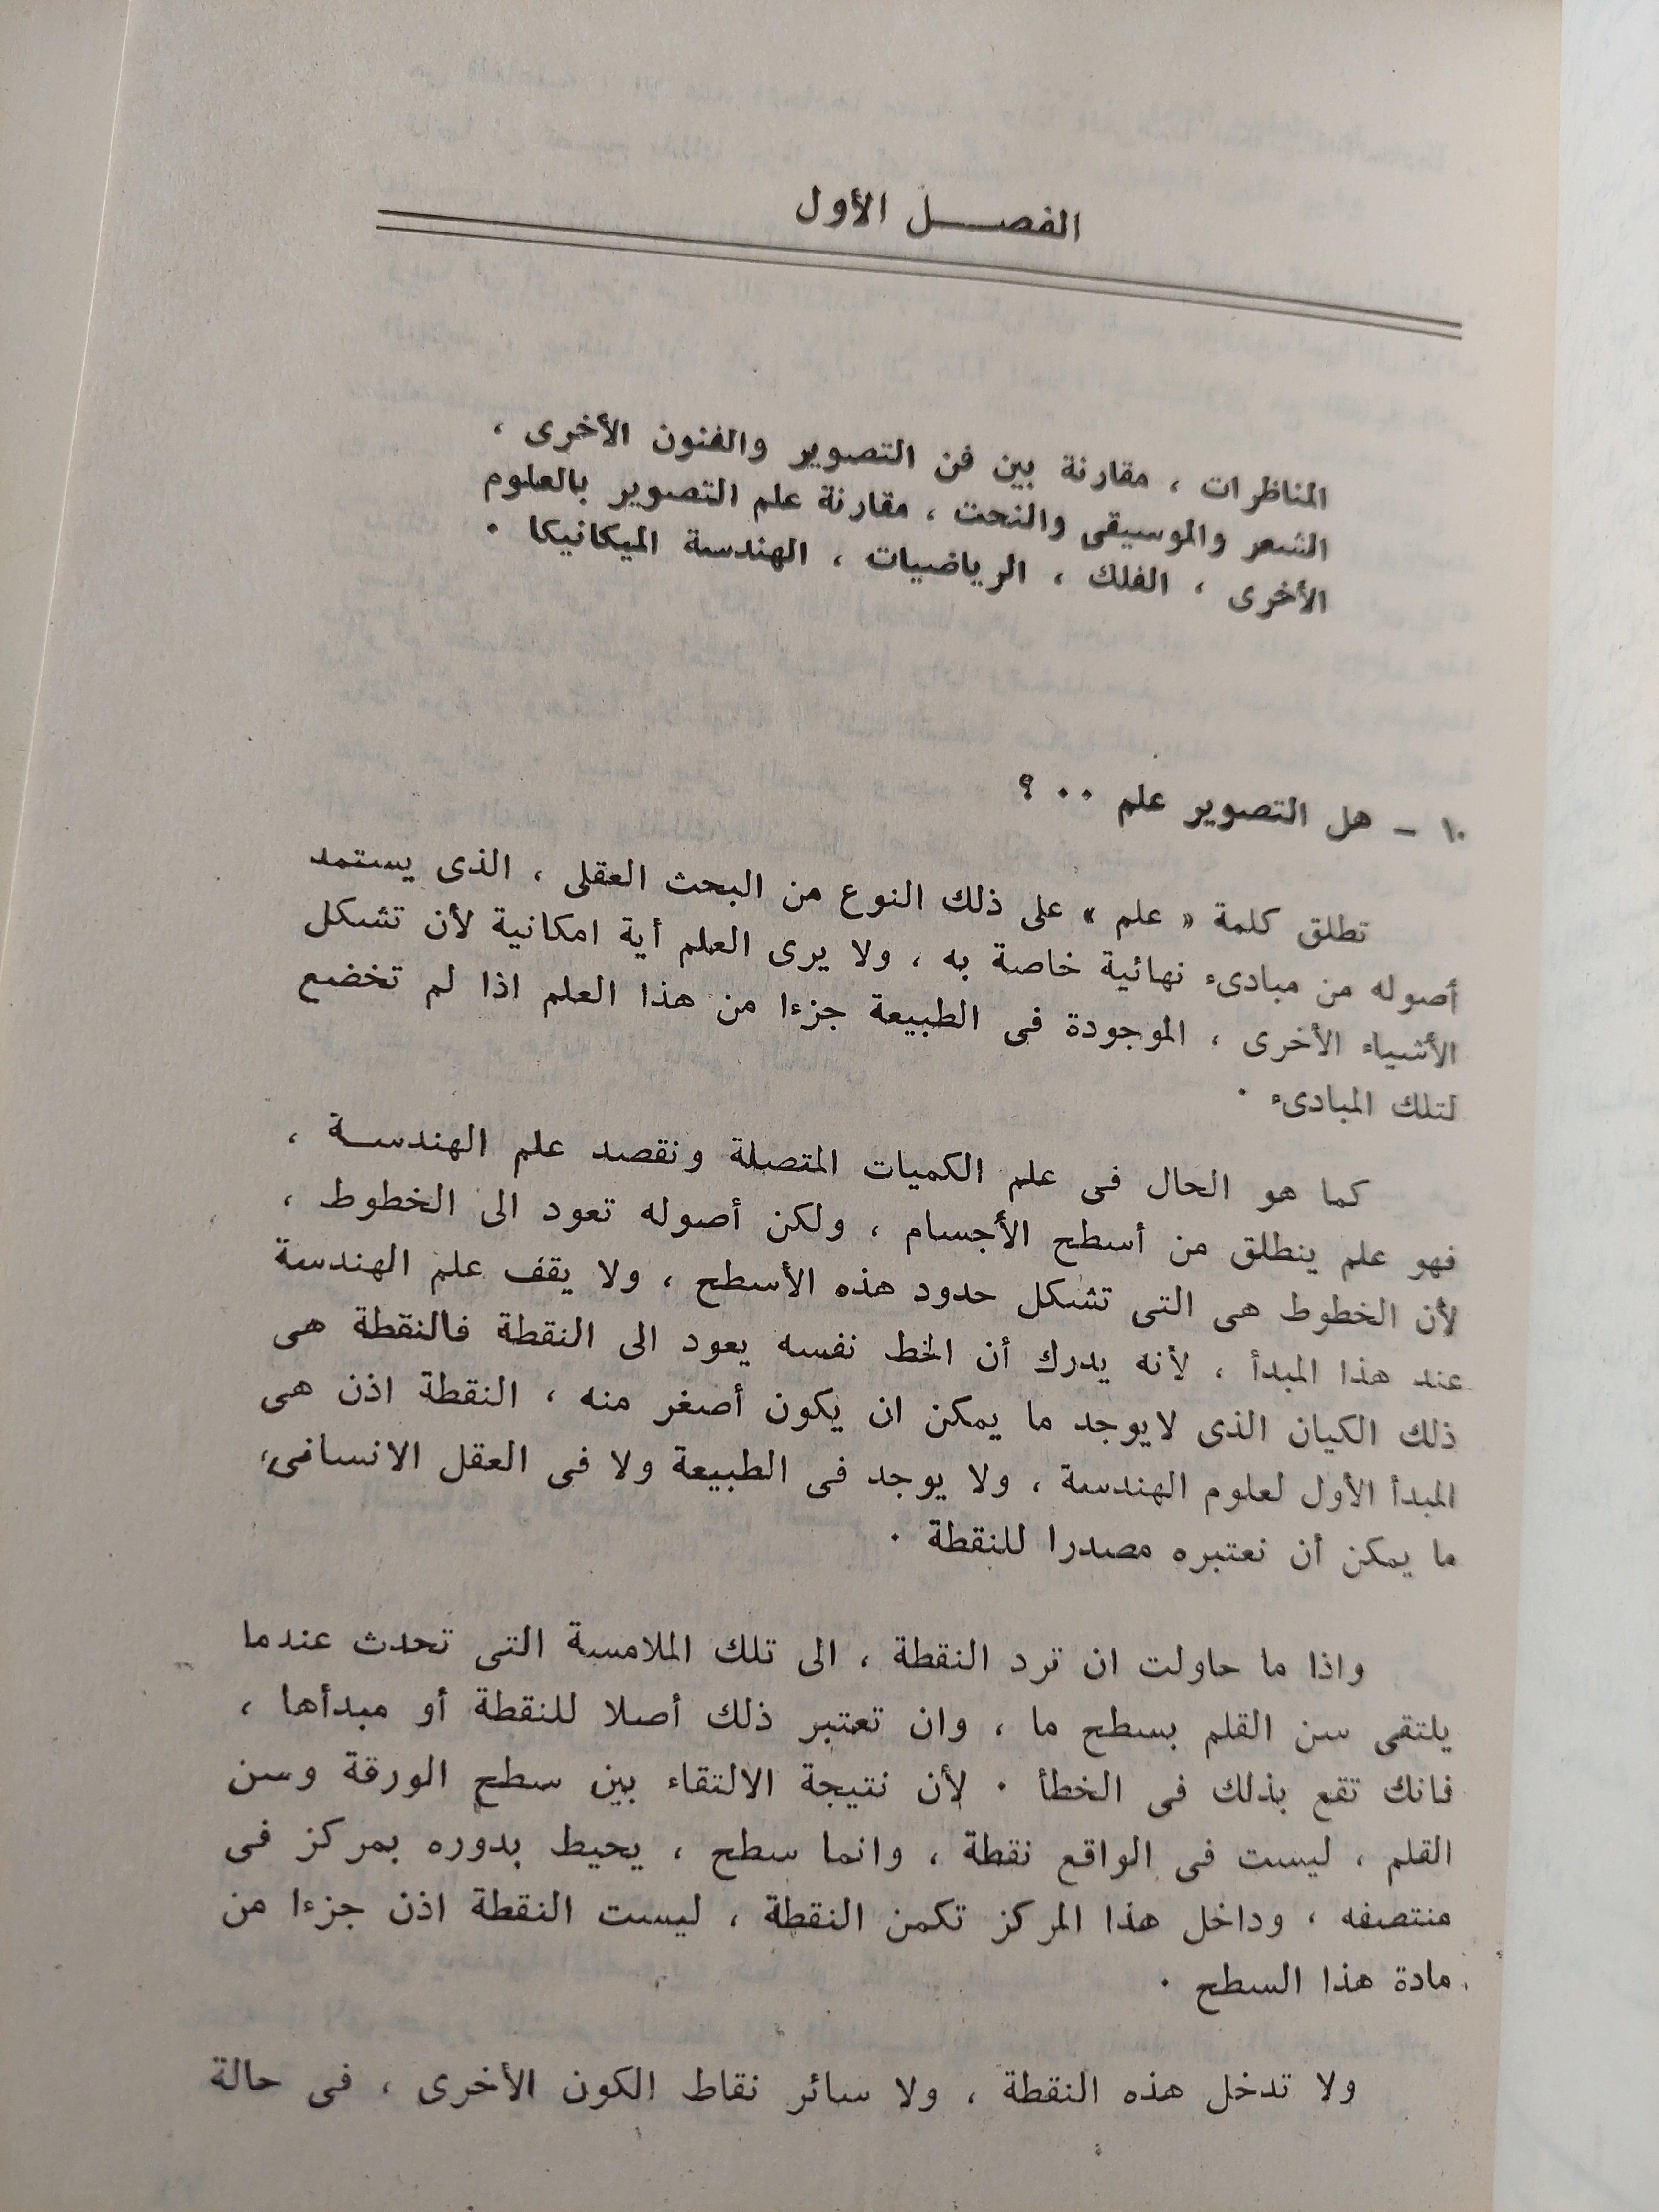 الفصــــل الأول
المناظرات ، مقارنة بين فن التصوير والفنون الأخرى ،
الشعر والموسيقى والنحت ، مقارنة علم التصوير بالعلوم
الأخرى ، الفلك ، الرياضيات ، الهندسة الميكانيكا ٠
١٠ - هل التصوير علم ٠٠ ؟
تطلق كلمة « علم » على ذلك النوع من البحث العقلى ، الذى يستمد
أصوله من مبادىء نهائية خاصة به ، ولا يرى العلم أية امكانية لأن تشكل
الأشياء الأخرى ، الموجودة فى الطبيعة جزءا من هذا العلم اذا لم تخضع
لتلك المبادىء ٠
كما هو الحال فى علم الكميات المتصلة ونقصد علم الهندســة ،
فهو علم ينطلق من أسطح الأجسام ، ولكن أصوله تعود الى الخطوط ،
لأن الخطوط هى التى تشكل حدود هذه الأسطح ، ولا يقف علم الهندسة
عند هذا المبدأ ، لأنه يدرك أن الخط نفسه يعود الى النقطة فالنقطة هى
ذلك الكيان الذى لايوجد ما يمكن ان يكون أصغر منه ، النقطة اذن هى
المبدأ الأول لعلوم الهندسة ، ولا يوجد فى الطبيعة ولا فى العقل الانسانى،
ما يمكن أن نعتبره مصدرا للنقطة ٠
واذا ما حاولت ان ترد النقطة ، الى تلك الملامسة التى تحدث عندما
يلتقى سن القلم بسطح ما ، وان تعتبر ذلك أصلا للنقطة أو مبدأها ،
فانك تقع بذلك فى الخطأ ٠ لأن نتيجة الالتقاء بين سطح الورقة وسن
القلم ، ليست فى الواقع نقطة ، وانما سطح ، يحيط بدوره بمركز فى
منتصفه ، وداخل هذا المركز تكمن النقطة ، ليست النقطة اذن جزءا من
مادة هذا السطح ٠
ولا تدخل هذه النقطة ، ولا سائر نقاط الكون الأخرى ، فى حالة